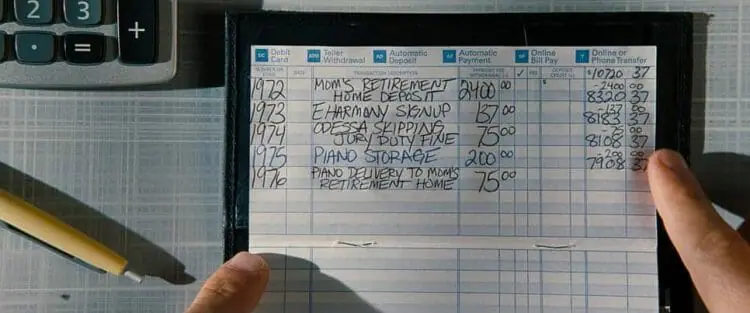 2 3 +
. =
DC Debit Card ATM Teller Withdrawal AD Automatic Deposit AP Automatic Payment Online Bill Pay T Online or Phone Transfer
DATE TRANSACTION DESCRIPTION PAYMENT, FEE WITHDRAWAL (-) ✓ FEE DEPOSIT CREDIT (+) $10720 37
1972 MOM'S RETIREMENT HOME DEPOSIT 2400 00 -2400 00
8320 37
1973 EHARMONY SIGNUP 137 00 -137 00
8183 37
1974 ODESSA SKIPPING JURY DUTY FINE 75 00 -75 00
8108 37
1975 PIANO STORAGE 200 00 -200 00
7908 37
1976 PIANO DELIVERY TO MOM'S RETIREMENT HOME 75 00